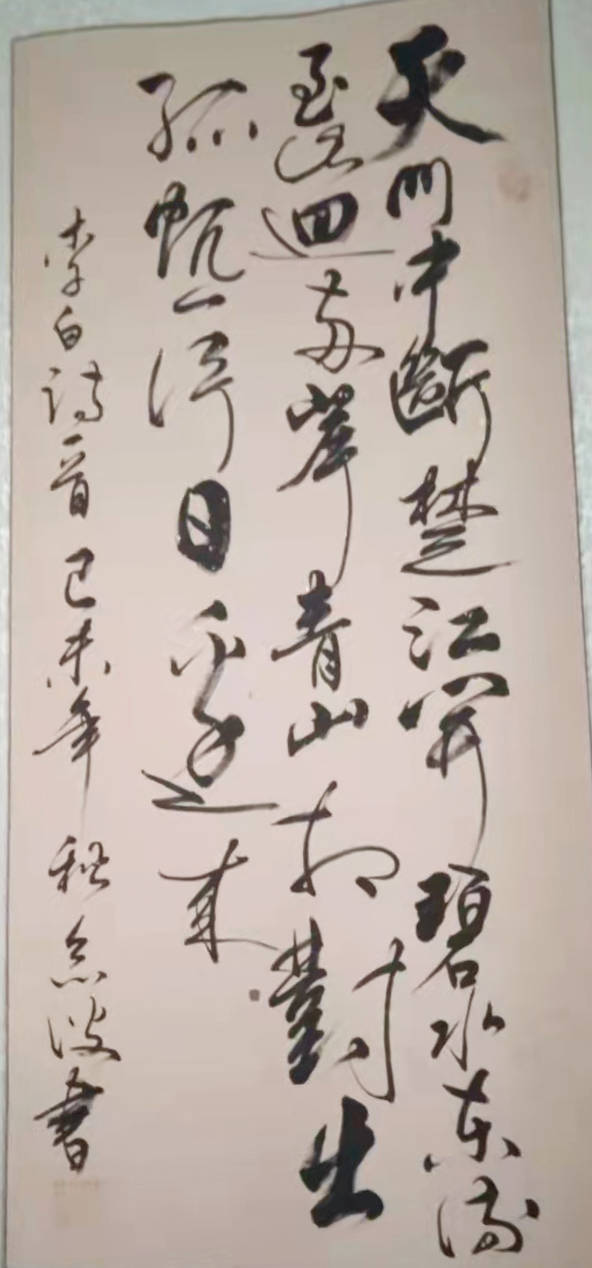 天門中斷楚江開碧水東流
至此迴兩岸青山相對出
孤帆一片日邊來
李白詩一首己未年秋念波書